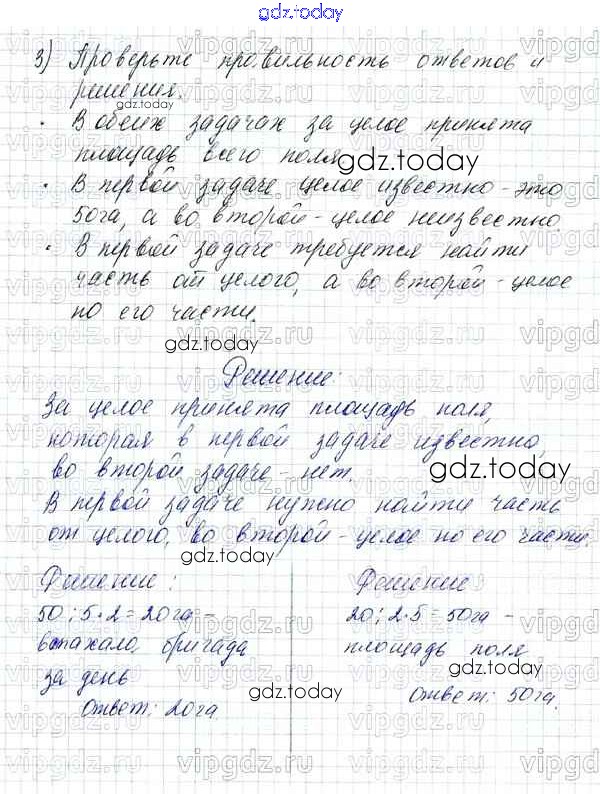 gdz.today
3) Проверьте правильность ответов и
решения.
· В обеих задачах за целое принята
площадь всего поля
· В первой задаче целое известно - это
50га, а во второй - целое неизвестно
· В первой задаче требуется найти
часть от целого, а во второй - целое
по его части.
Решение:
За целое принята площадь поля,
которая в первой задаче известно,
во второй задаче - нет.
В первой задаче нужно найти часть
от целого, во второй - целое по его части.
Решение:
50 : 5 · 2 = 20 га -
вспахало, бригада
за день
Ответ: 20га
Решение:
20 : 2 · 5 = 50га -
площадь поля
Ответ: 50га.